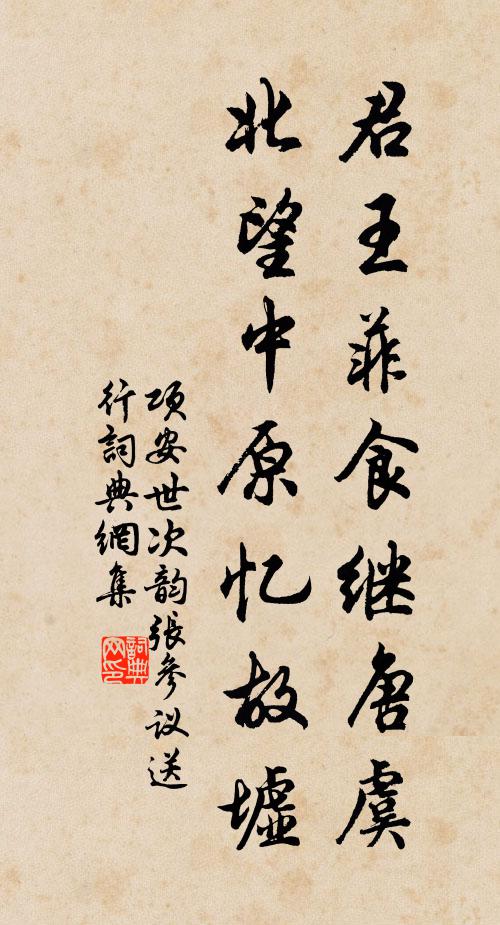 君王菲食继唐虞
北望中原忆故墟
项安世次韵張参议送
行詞典網集
詞典网印